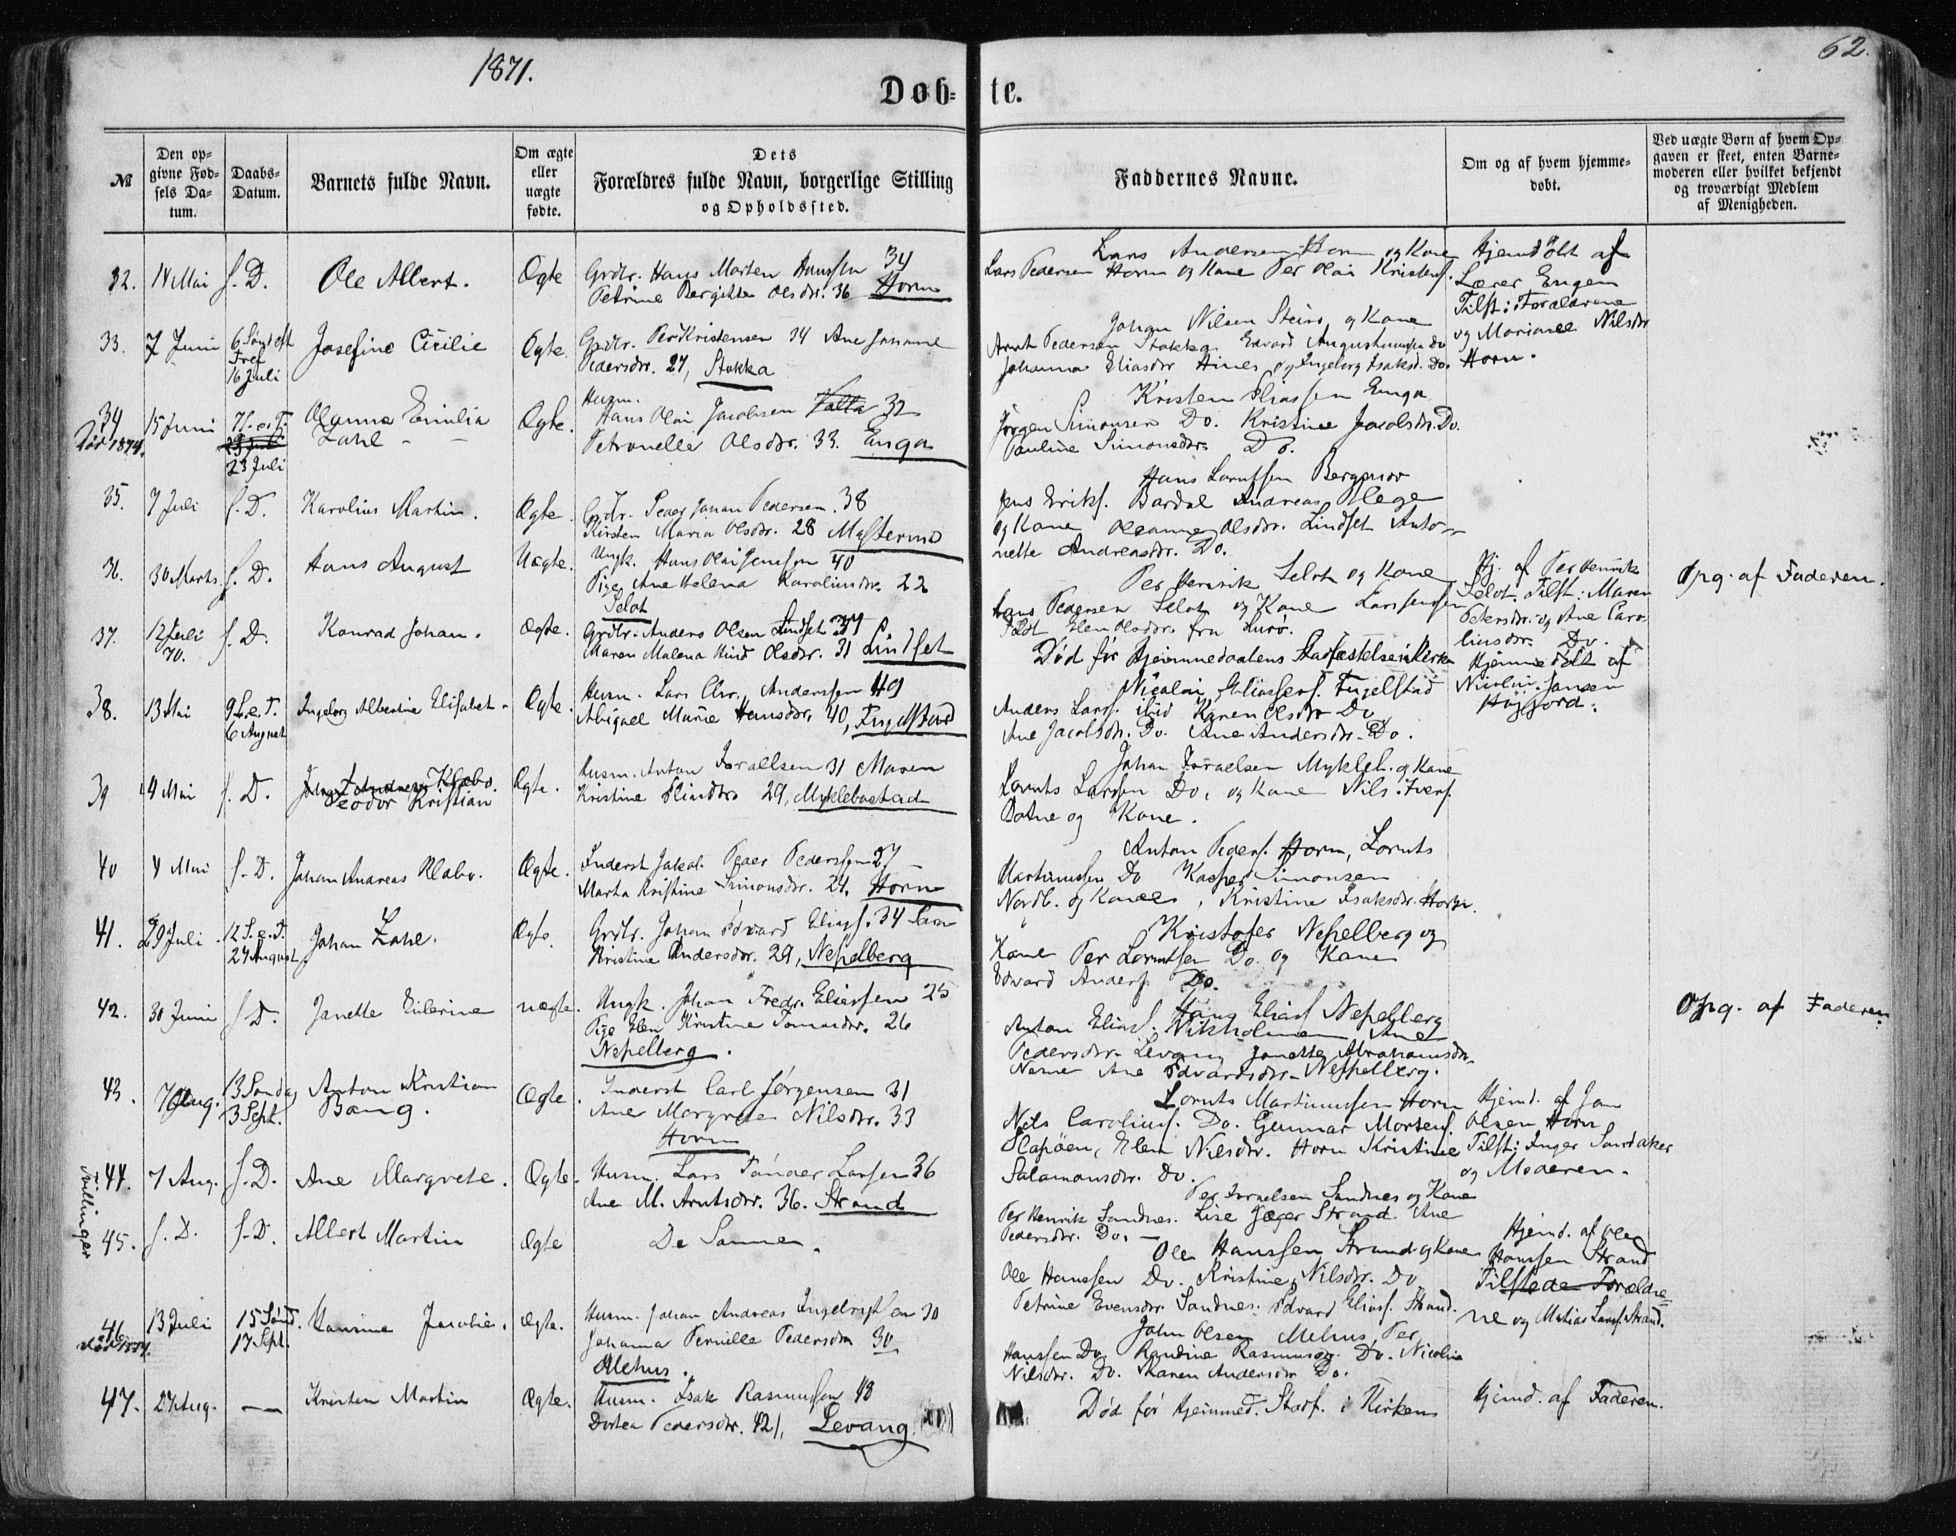 1871.
62.
Døb= te.
№
Den opgivne Fødsels Datum.
Daabs-Datum.
Barnets fulde Navn.
Om ægte eller uægte fødte.
Dets Forældres fulde Navn, borgerlige Stilling og Opholdssted.
Faddernes Navne.
Om og af hvem hjemmedøbt.
Ved uægte Børn af hvem Opgaven er skeet, enten Barnemoderen eller hvilket bekjendt og troværdigt Medlem af Menigheden.
32. 14 Mai f. D. Ole Albert. Ægte
Grdtr. Hans Morten Hanssen 34
Petrine Bergitte Olsdr. 36 Horn
Lars Andersen Horn og Kone
Lars Pedersen Horn og Kone Per Olai Kristens.
Hjemdøbt af
Lærer Engen
Tilst: Forældrene
og Mariane Nilsdr
Horn.
33. 7 Juni 6 Sønd eft Tref 16 Juli Josefine Cicilie Ægte.
Grdtr. Per Kristensen 34 Ane Johanne
Pedersdr. 27, Stokka
Johan Nilsen Steiro og Kone
Arnt Pedersen Stokka Edvard Augustinussen Do
Johanna Eliasdr Hines og Ingeborg Isaksd. Do.
34 Død 1874. 15 Juni 7 S. e. T. 23 Juli Olanna Emilia Zahl Ægte.
Husm.
Hans Olai Jacobsen 32
Petronelle Olsdr. 33. Enga
Kristen Eliassen Enga
Jørgen Simonsen Do. Kristine Jacobsdr. Do.
Pauline Simonsdr. Do.
35. 7 Juli f. D. Karolius Martin. Ægte.
Grdtr. Peder Johan Pedersen 38
Kirsten Maria Olsdr. 28
Hans Lorntsen Bergsnov
Jens Eriks. Bardal Andreas
og Kone Oleanne Olsdr. Lindset Anto-
nette Andreasdr. Do.
36. 30 Marts. f. D. Hans August Uægte.
Ungk. Hans Olai Jenssen 40
Pige Ane Helena Karoliusdr. 22
Selot
Per Henrik Selot og Kone
Lars Pedersen Selot og Kone
Elen Olsdr. fra Lurø.
Hj. af Per Henrik
Selot. Tilst: Maren
Petersdr. og Ane Caro-
liusdr. Do.
Opg. af Faderen.
37. 12 Juli 70. f. D. Konrad Johan. Ægte.
Grdtr. Anders Olsen Lindset 34
Maren Malena Olsdr. 31 Lindset
Død før Hjemmedaabens Stadfæstelse i Kirken
Hjemmedøbt af
Nicolai Jansen
Høyfjord.
38. 13 Mai 9 S. e. T. 6 August Ingeborg Albertine Elisabet Ægte.
Husm. Lars Chr. Anderssen 40
Abigael Marie Hansdr. 40, Tingelstad
Nicolai Eliassen. Tingelstad
Anders Lars. ibid Karen Olsdr Do
Ane Jacobsdr. Do. Ane Andersdr. Do.
39 19 Mai f. D. Johan Andreas Klæbo. Teodor Kristian Ægte.
Husm. Anton Israelsen 31 Maren
Kristine Elindsdr 29, Myklebostad
Johan Israelsen Mykleb. og Kone
Lornts Larssen Do. og Kone Nils Ivers.
Botne og Kone.
40 4 Mai f. D. Johan Andreas Klæbo. Ægte.
Inderst Jakob Peder Pederssen 27
Marta Kristine Simonsdr. 24. Horn
Anton Peders. Horn, Lornts
Martinussen Do Kasper Simonsen
Nordb. og Kone, Kristine Isaksdr. Horn.
41. 29 Juli 12 S. e. T. 27 August Johan Zahl. Ægte.
Grdtr. Johan Edvard Elias. 34
Kristine Andersdr. 29, Nepelberg
Kristofer Nepelberg og
Kone Per Lorntsen Do. og Kone
Edvard Anders. Do.
42. 30 Juni f. D. Janette Eulerine uægte.
Ungk. Johan Fredr. Eliessen 25
Pige Elen Kristine Tomasdr. 26
Nepelberg.
Hans Elias Nepelberg
Anton Elias. Nikholmen Ane
Pedersdr. Levang Janette Abrahamsdr.
Nesne Ane Edvardsdr. Nepelberg.
Opg. af Faderen.
43. 7 Aug. 13 Søndag 3 Sept. Anton Kristian Bang. Ægte.
Inderst Carl Jørgensen 31
Ane Margrete Nilsdr. 33
Horn
Lornts Martinussen Horn
Nils Carolius. Do. Gunnar Mortens.
Slapøen, Elen Nilsdr. Horn Kristine
Salamonsdr. Do.
Hjemd. af Jan
Olsen Horn
Tilst: Inger Sandaker
og Moderen.
Tvillinger
44. 7 Aug. f. D. Ane Margrete. Ægte.
Husm. Lars Tønder Larsen 36
Ane M. Arntsdr. 36. Strand
Per Israelsen Sandnes og Kone
Per Henrik Sandnes. Lise Jæger Strand. Ane
Pedersdr. Do.
45. f. D. f. D. Albert Martin Ægte
De Samme.
Ole Hanssen Strand og Kone
Ole Hanssen Do. Kristine Nilsdr. Do
Petrine Evensdr. Sandnes. Edvard Elias. Strand.
Hjemd. af Ole
Hanssen Strand
Tilstede Foreldre=
ne og Matias Lars. Strand.
46 13 Juli 15 Sønd. 17 Sept. Jacobie. Ægte.
Husm. Johan Andreas Ingebrigtsen 30
Johanna Pernille Pedersdr 30
Mehus.
John Olsen Mehus Per
Hanssen Do Rasmusdr. Do. Nicoline
Nilsdr. Do. Karen Andersdr Do.
47. 27 Aug. — Kristen Martin Ægte.
Husm. Isak Rasmussen 43
Dortea Pedersdr. 42, Levang
Død før Hjemmed. Stadf. i Kirken
Hjemd. af Faderen.